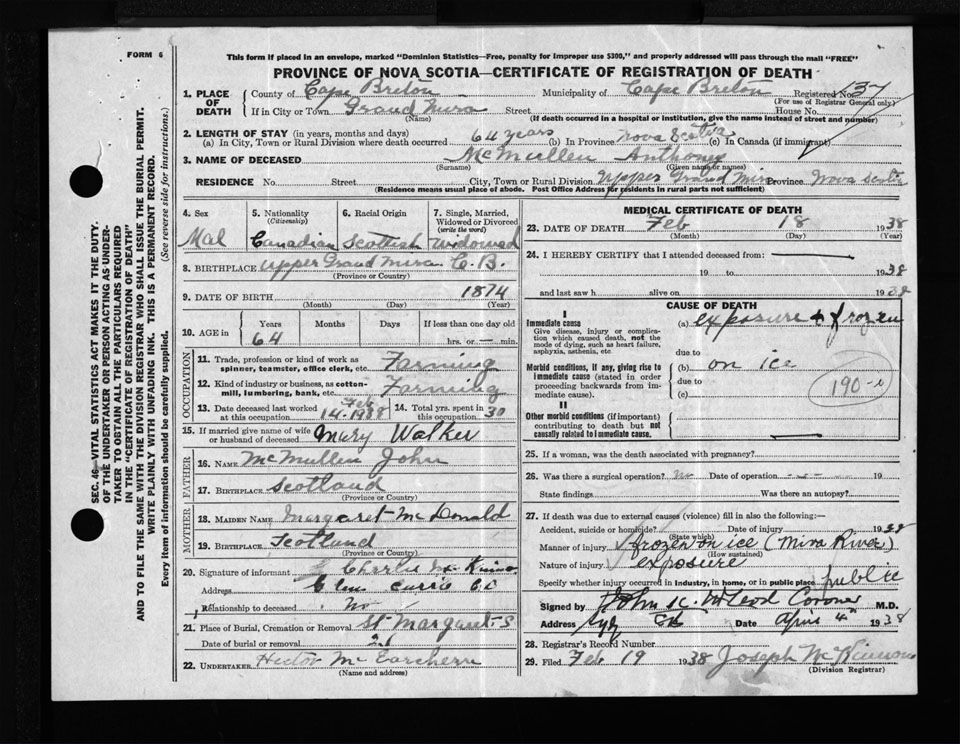 FORM 6
This form if placed in an envelope, marked "Dominion Statistics—Free, penalty for improper use $300," and properly addressed will pass through the mail "FREE"
PROVINCE OF NOVA SCOTIA—CERTIFICATE OF REGISTRATION OF DEATH
SEC. 46—VITAL STATISTICS ACT MAKES IT THE DUTY.
OF THE UNDERTAKER OR PERSON ACTING AS UNDER-
TAKER TO OBTAIN ALL THE PARTICULARS REQUIRED
IN THE "CERTIFICATE OF REGISTRATION OF DEATH"
AND TO FILE THE SAME WITH THE DIVISION REGISTRAR WHO SHALL ISSUE THE BURIAL PERMIT.
WRITE PLAINLY WITH UNFADING INK. THIS IS A PERMANENT RECORD.
Every item of information should be carefully supplied. (See reverse side for instructions.)
1. PLACE OF DEATH
County of Cape Breton Municipality of Cape Breton Registered No. 37
(For use of Registrar General only.)
If in City or Town Grand Mira Street House No.
(Name) (If death occurred in a hospital or institution, give the name instead of street and number)
2. LENGTH OF STAY (in years, months and days)
(a) In City, Town or Rural Division where death occurred 64 years (b) In Province Nova Scotia (c) In Canada (if immigrant)
3. NAME OF DECEASED McMullen Anthony
(Surname) (Given name or names)
RESIDENCE No. Street City, Town or Rural Division Upper Grand Mira Province Nova Scotia
(Residence means usual place of abode. Post Office Address for residents in rural parts not sufficient)
4. Sex Mal
5. Nationality (Citizenship) Canadian
6. Racial Origin Scottish
7. Single, Married, Widowed or Divorced (write the word) Widowed
8. BIRTHPLACE Upper Grand Mira C.B.
(Province or Country)
9. DATE OF BIRTH 1874
(Month) (Day) (Year)
10. AGE in Years Months Days If less than one day old
64 hrs. or — min.
OCCUPATION
11. Trade, profession or kind of work as spinner, teamster, office clerk, etc. Farming
12. Kind of industry or business, as cotton-mill, lumbering, bank, etc. Farming
13. Date deceased last worked at this occupation Feb 14-1938 14. Total yrs. spent in this occupation 30
15. If married give name of wife or husband of deceased Mary Walker
FATHER
16. NAME McMullen John
17. BIRTHPLACE Scotland
(Province or Country)
MOTHER
18. MAIDEN NAME Margaret McDonald
19. BIRTHPLACE Scotland
(Province or Country)
20. Signature of informant Charlie
Address
Relationship to deceased No
21. Place of Burial, Cremation or Removal St Margaret,s
Date of burial or removal 21
22. UNDERTAKER Hector McEachern
(Name and address)
MEDICAL CERTIFICATE OF DEATH
23. DATE OF DEATH Feb 18 1938
(Month) (Day) (Year)
24. I HEREBY CERTIFY that I attended deceased from
19 to 1938
and last saw h alive on 1938
CAUSE OF DEATH
I
Immediate cause
Give disease, injury or complication which caused death, not the mode of dying, such as heart failure, asphyxia, asthenia, etc
(a) exposure & frozen
due to
Morbid conditions, if any, giving rise to immediate cause (stated in order proceeding backwards from immediate cause).
(b) on ice
due to
(c)
190-i
II
Other morbid conditions (if important) contributing to death but not causally related to immediate cause.
25. If a woman, was the death associated with pregnancy?
26. Was there a surgical operation? No Date of operation 19
State findings Was there an autopsy?
27. If death was due to external causes (violence) fill in also the following:
Accident, suicide or homicide? Date of injury 1938
(State which)
Manner of injury frozen on ice (Mira River)
(How sustained)
Nature of injury exposure
Specify whether injury occurred in industry, in home, or in public place public
Signed by John K. McLeod Coroner M.D.
Address Syd CB Date April 4 1938
28. Registrar's Record Number
29. Filed Feb 19 1938 Joseph
(Division Registrar)